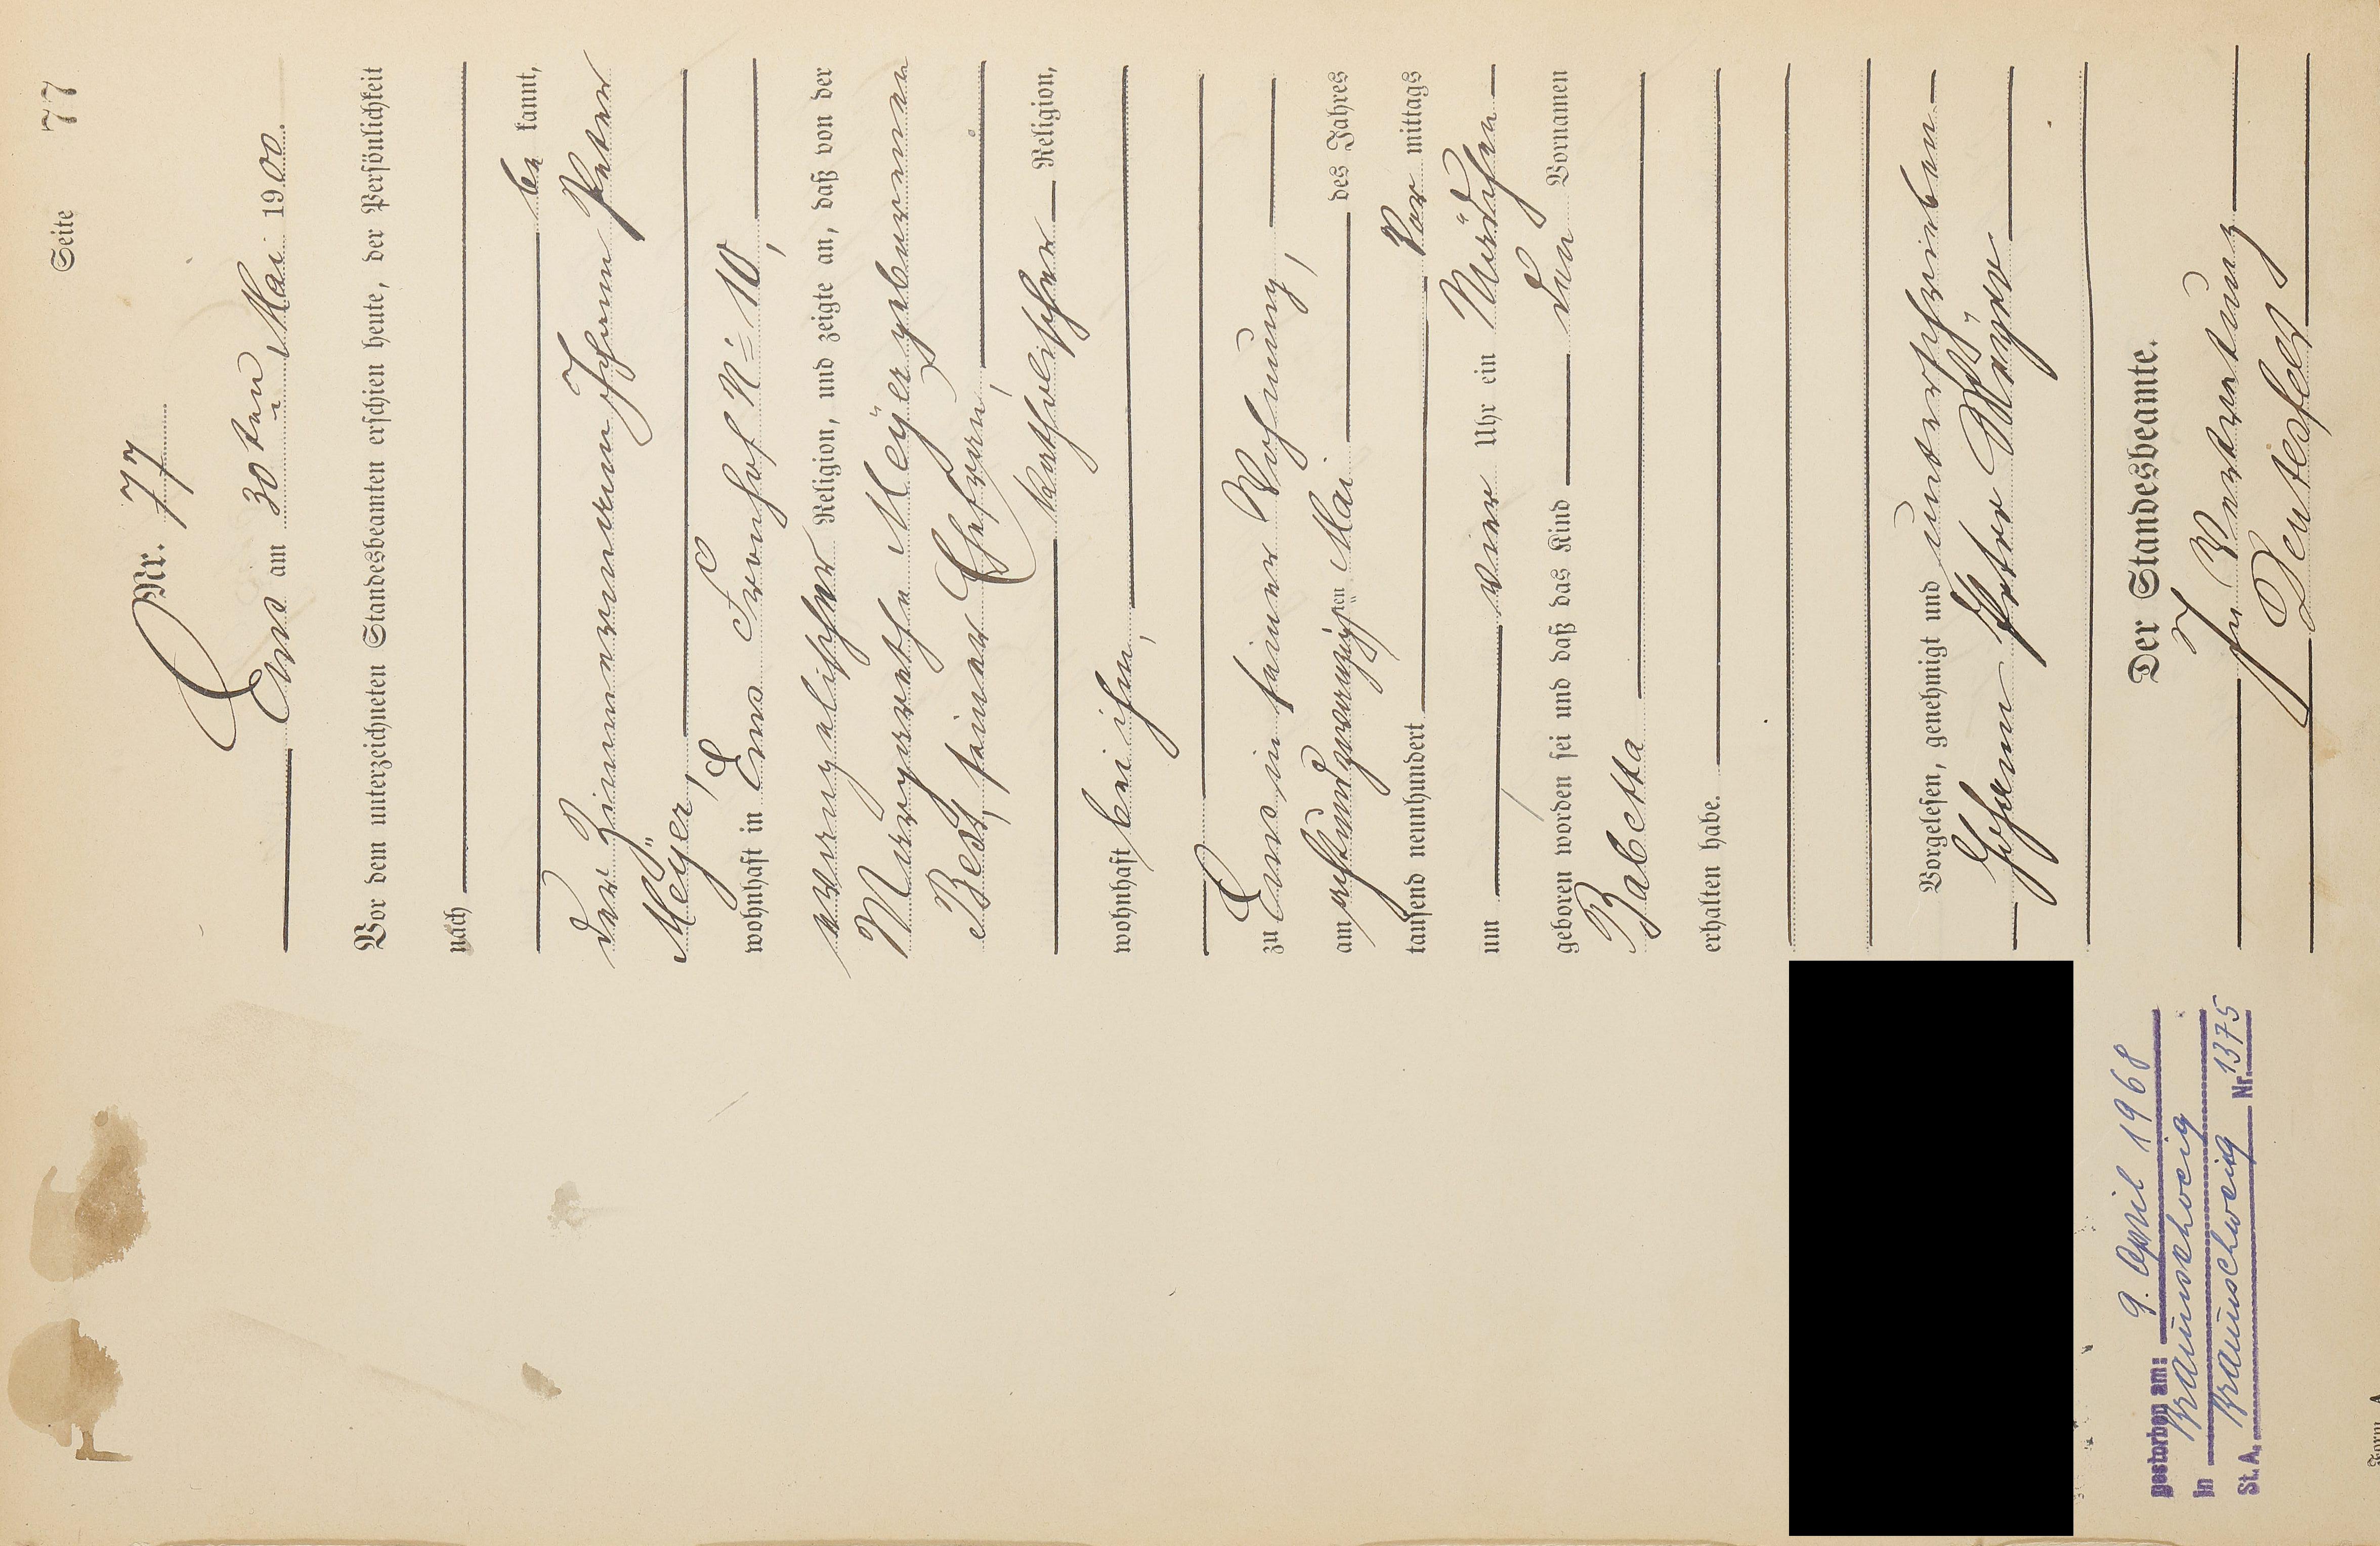 Seite 77
Nr. 77
Ems am 30ten Mai 1900.
Vor dem unterzeichneten Standesbeamten erschien heute, der Persönlichkeit
nach
be kannt,
der Zimmermann Johann Peter
Meyer,
wohnhaft in Ems Fronhof No 10,
evangelischer Religion, und zeigte an, daß von der
Margarethe Meÿer geborenen
Best, seiner Ehefrau,
katholischer Religion,
wohnhaft bei ihm,
zu Ems in seiner Wohnung,
am achtundzwanzigsten Mai des Jahres
tausend neunhundert Vor mittags
um vier Uhr ein Mädchen
geboren worden sei und daß das Kind den Vornamen
Babetta
erhalten habe.
Vorgelesen, genehmigt und unterschrieben
Johann Peter Meÿer
Der Standesbeamte.
In Vertretung
gestorben am: 9. April 1968
in Braunschweig
St. A. Braunschweig Nr. 1375